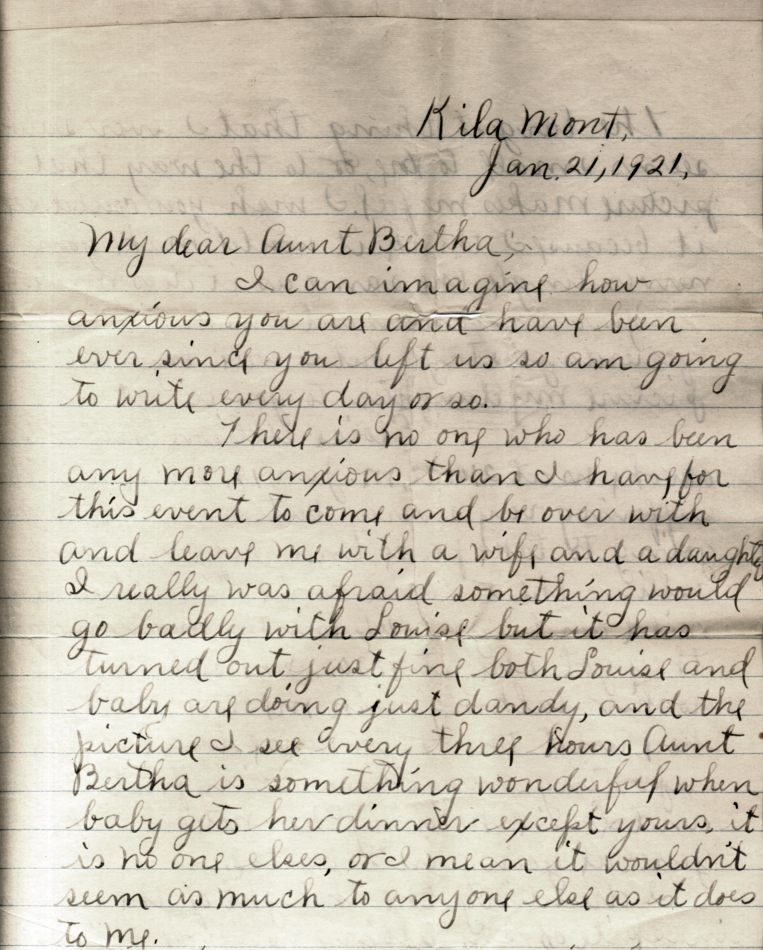 Kila Mont,
Jan. 21, 1921,
My dear Aunt Bertha,
I can imagine how
anxious you are and have been
ever since you left us so am going
to write every day or so.
There is no one who has been
any more anxious than I have for
this event to come and be over with
and leave me with a wife and a daughter
I really was afraid something would
go badly with Louise but it has
turned out just fine both Louise and
baby are doing just dandy, and the
picture I see every three hours Aunt
Bertha is something wonderful when
baby gets her dinner except yours, it
is no one elses, or I mean it wouldn't
seem as much to anyone else as it does
to me.